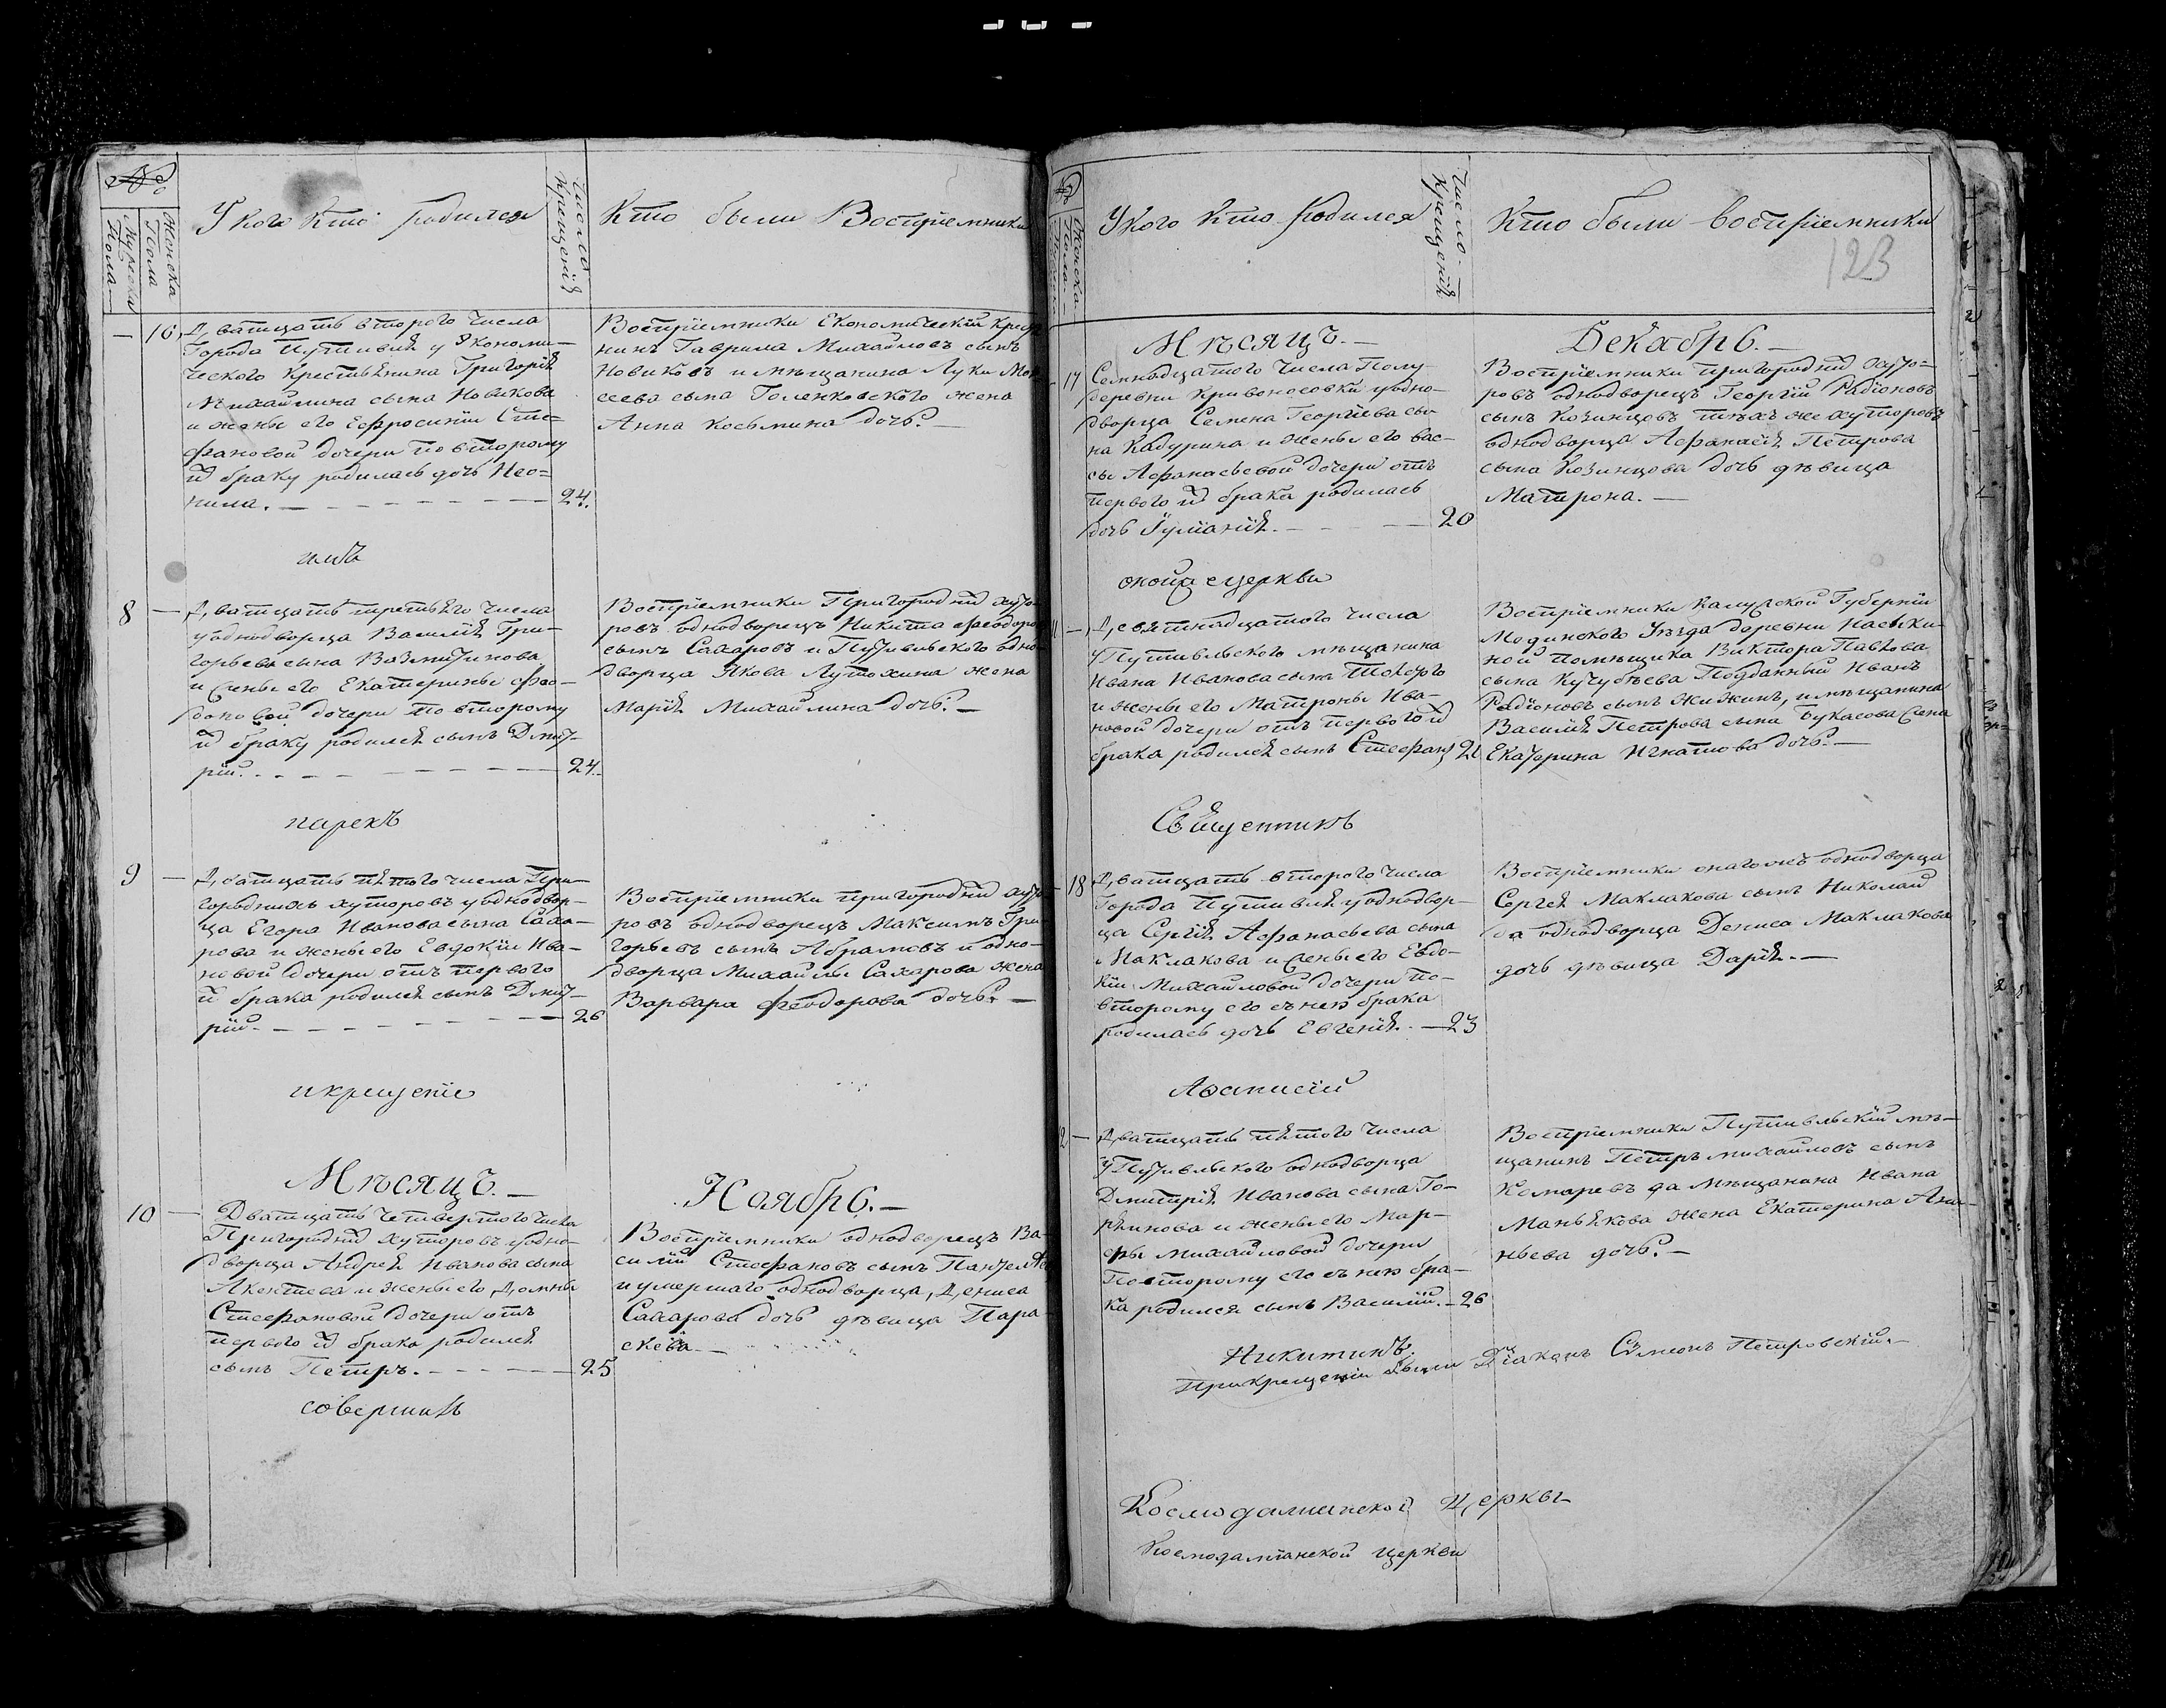 №
Мужеска Пола
Женска Пола
У кого кто родился
Число Крещенія
Кто были Воспріемники
— 16
Дватцать второго числа
Города Путивля у Экономи-
ческого крестьянина Григорія
Михайлина сына Новикова
и жены его Ефросиніи Сте-
фановой дочери по второму
браку родилась дочь Нео-
нила. — 24.
Воспріемники Економическій
Гаврила Михайловъ сынъ
Новиковъ и мѣщанина Луки
сеева сына Голенковского жена
Анна Косьмина дочь. —
имъ
8 —
Дватцать третьяго числа
у однодворца Василія Гри-
горьева сына
и жены его Екатерины
доновой дочери по второму
браку родился сынъ Дмит-
рій. — 24.
Воспріемники Пригородній хуто-
ровъ однодворецъ Никита Феодоровъ
сынъ Сахаровъ и Путивльского одно-
дворца Якова Лутохина жена
Марія Михайлина дочь. —
нарекъ
9 —
Дватцать пятого числа При-
городнихъ хуторовъ у однодвор-
ца Егора Иванова сына Саха-
рова и жены его Евдокіи Ива-
новой дочери отъ первого
брака родился сынъ Дмит-
рій. — 26
Воспріемники пригородній хуто-
ровъ однодворецъ Максимъ Гри-
горьевъ сынъ Абрамовъ и одно-
дворца Михайлы Сахарова жена
Варвара Феодорова дочь. —
и крещеніе
Мѣсяцъ. — Ноябрь. —
10 —
Дватцать четвертого числа
Пригородній хуторовъ у одно-
дворца Андрея Иванова сына
Акентева и жены его Домны
Стефановой дочери отъ
первого брака родился
сынъ Петръ. — 25
Воспріемники однодворецъ Ва-
силій Стефановъ сынъ
и умершаго однодворца Дениса
Сахарова дочь дѣвица Пара
скева —
совершилъ
№
Женска Пола
У кого кто родился
Число Крещенія
Кто были воспріемники
123
Мѣсяцъ. — Декабрь. —
17
Семнадцатого числа Полу-
деревни Кривоносовки у одно-
дворца Семена Георгіева сы-
на Кадурина и жены его Вас-
сы Афанасьевой дочери отъ
первого брака родилась
дочь Іуліанія. — 20
Воспріемники пригородній хуто-
ровъ однодворецъ Георгій Радіоновъ
сынъ Козинцовъ тѣхъ же хуторовъ
однодворца Афанасія Петрова
сына Козинцова дочь дѣвица
Матрона. —
оной церкви
11 —
Девятнадцатого числа
у Путивльского мѣщанина
Ивана Иванова сына
и жены его Матроны Ива-
новой дочери отъ первого
брака родился сынъ Стефанъ 21
Воспріемники Калужской Губерніи
Мединского Уѣзда деревни
ной помѣщика Виктора Павлова
сына Кучубѣева Подданный Иванъ
Радіоновъ сынъ Жижинъ, и мѣщанина
Василія Петрова сына Букасова жена
Екатерина Игнатова дочь. —
Священникъ
18
Дватцать второго числа
Города Путивля у однодвор-
ца Сергія Афанасьева сына
Маклакова и жены его Евдо-
кіи Михайловой дочери по-
второму его съ нею брака
родилась дочь Евгенія. — 23
Воспріемники онаго жъ однодворца
Сергея Маклакова сынъ Николай
да однодворца Дениса Маклакова
дочь дѣвица Дарія. —
Афанасій
12 —
Дватцать пятого числа
у Путивльского однодворца
Дмитрія Иванова сына Го-
ряинова и жены его Мар-
фы Михайловой дочери
Повторому его съ нею бра-
ка родился сынъ Василій. — 26
Воспріемники Путивльскій мѣ-
щанинъ Петръ Михайловъ сынъ
Комаревъ да мѣщанина Ивана
Манькова жена Екатерина Ана-
ньева дочь. —
Никитинъ.
При крещеніи были Діаконъ Сѵмеонъ Петровскій. —
Космодаміанской Церкви
Космодаміанской церкви